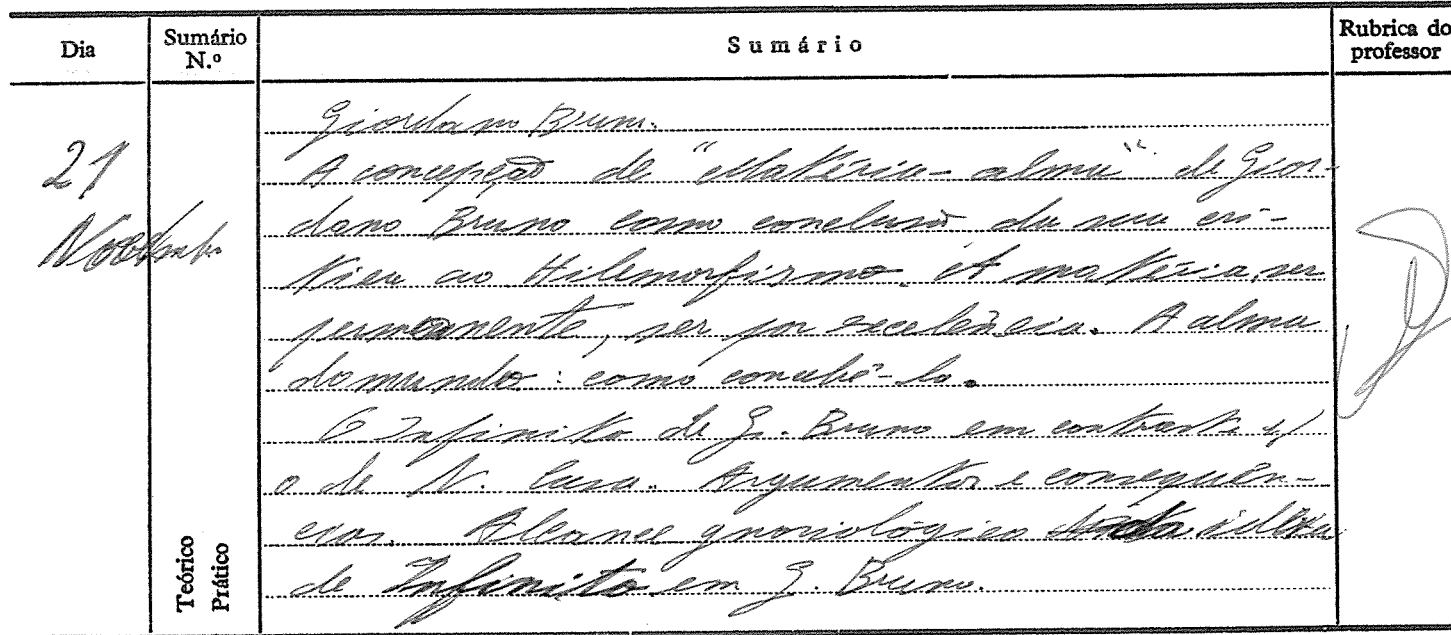 Dia
Sumário
N.º
Sumário
Rubrica do
professor
21
Novembro
Teórico
Prático
Giordano Bruno.
A concepção de "Matéria-alma" de Gior-
dano Bruno como conclusão da sua crí-
tica ao Hilemorfismo. A matéria, ser
permanente, ser por excelência. A alma
do mundo: como concebê-la.
O Infinito de G. Bruno em contraste c/
o de N. Cusa. Argumentos e consequên-
cias. Alcance gnosiológico da ideia
de Infinito em G. Bruno.